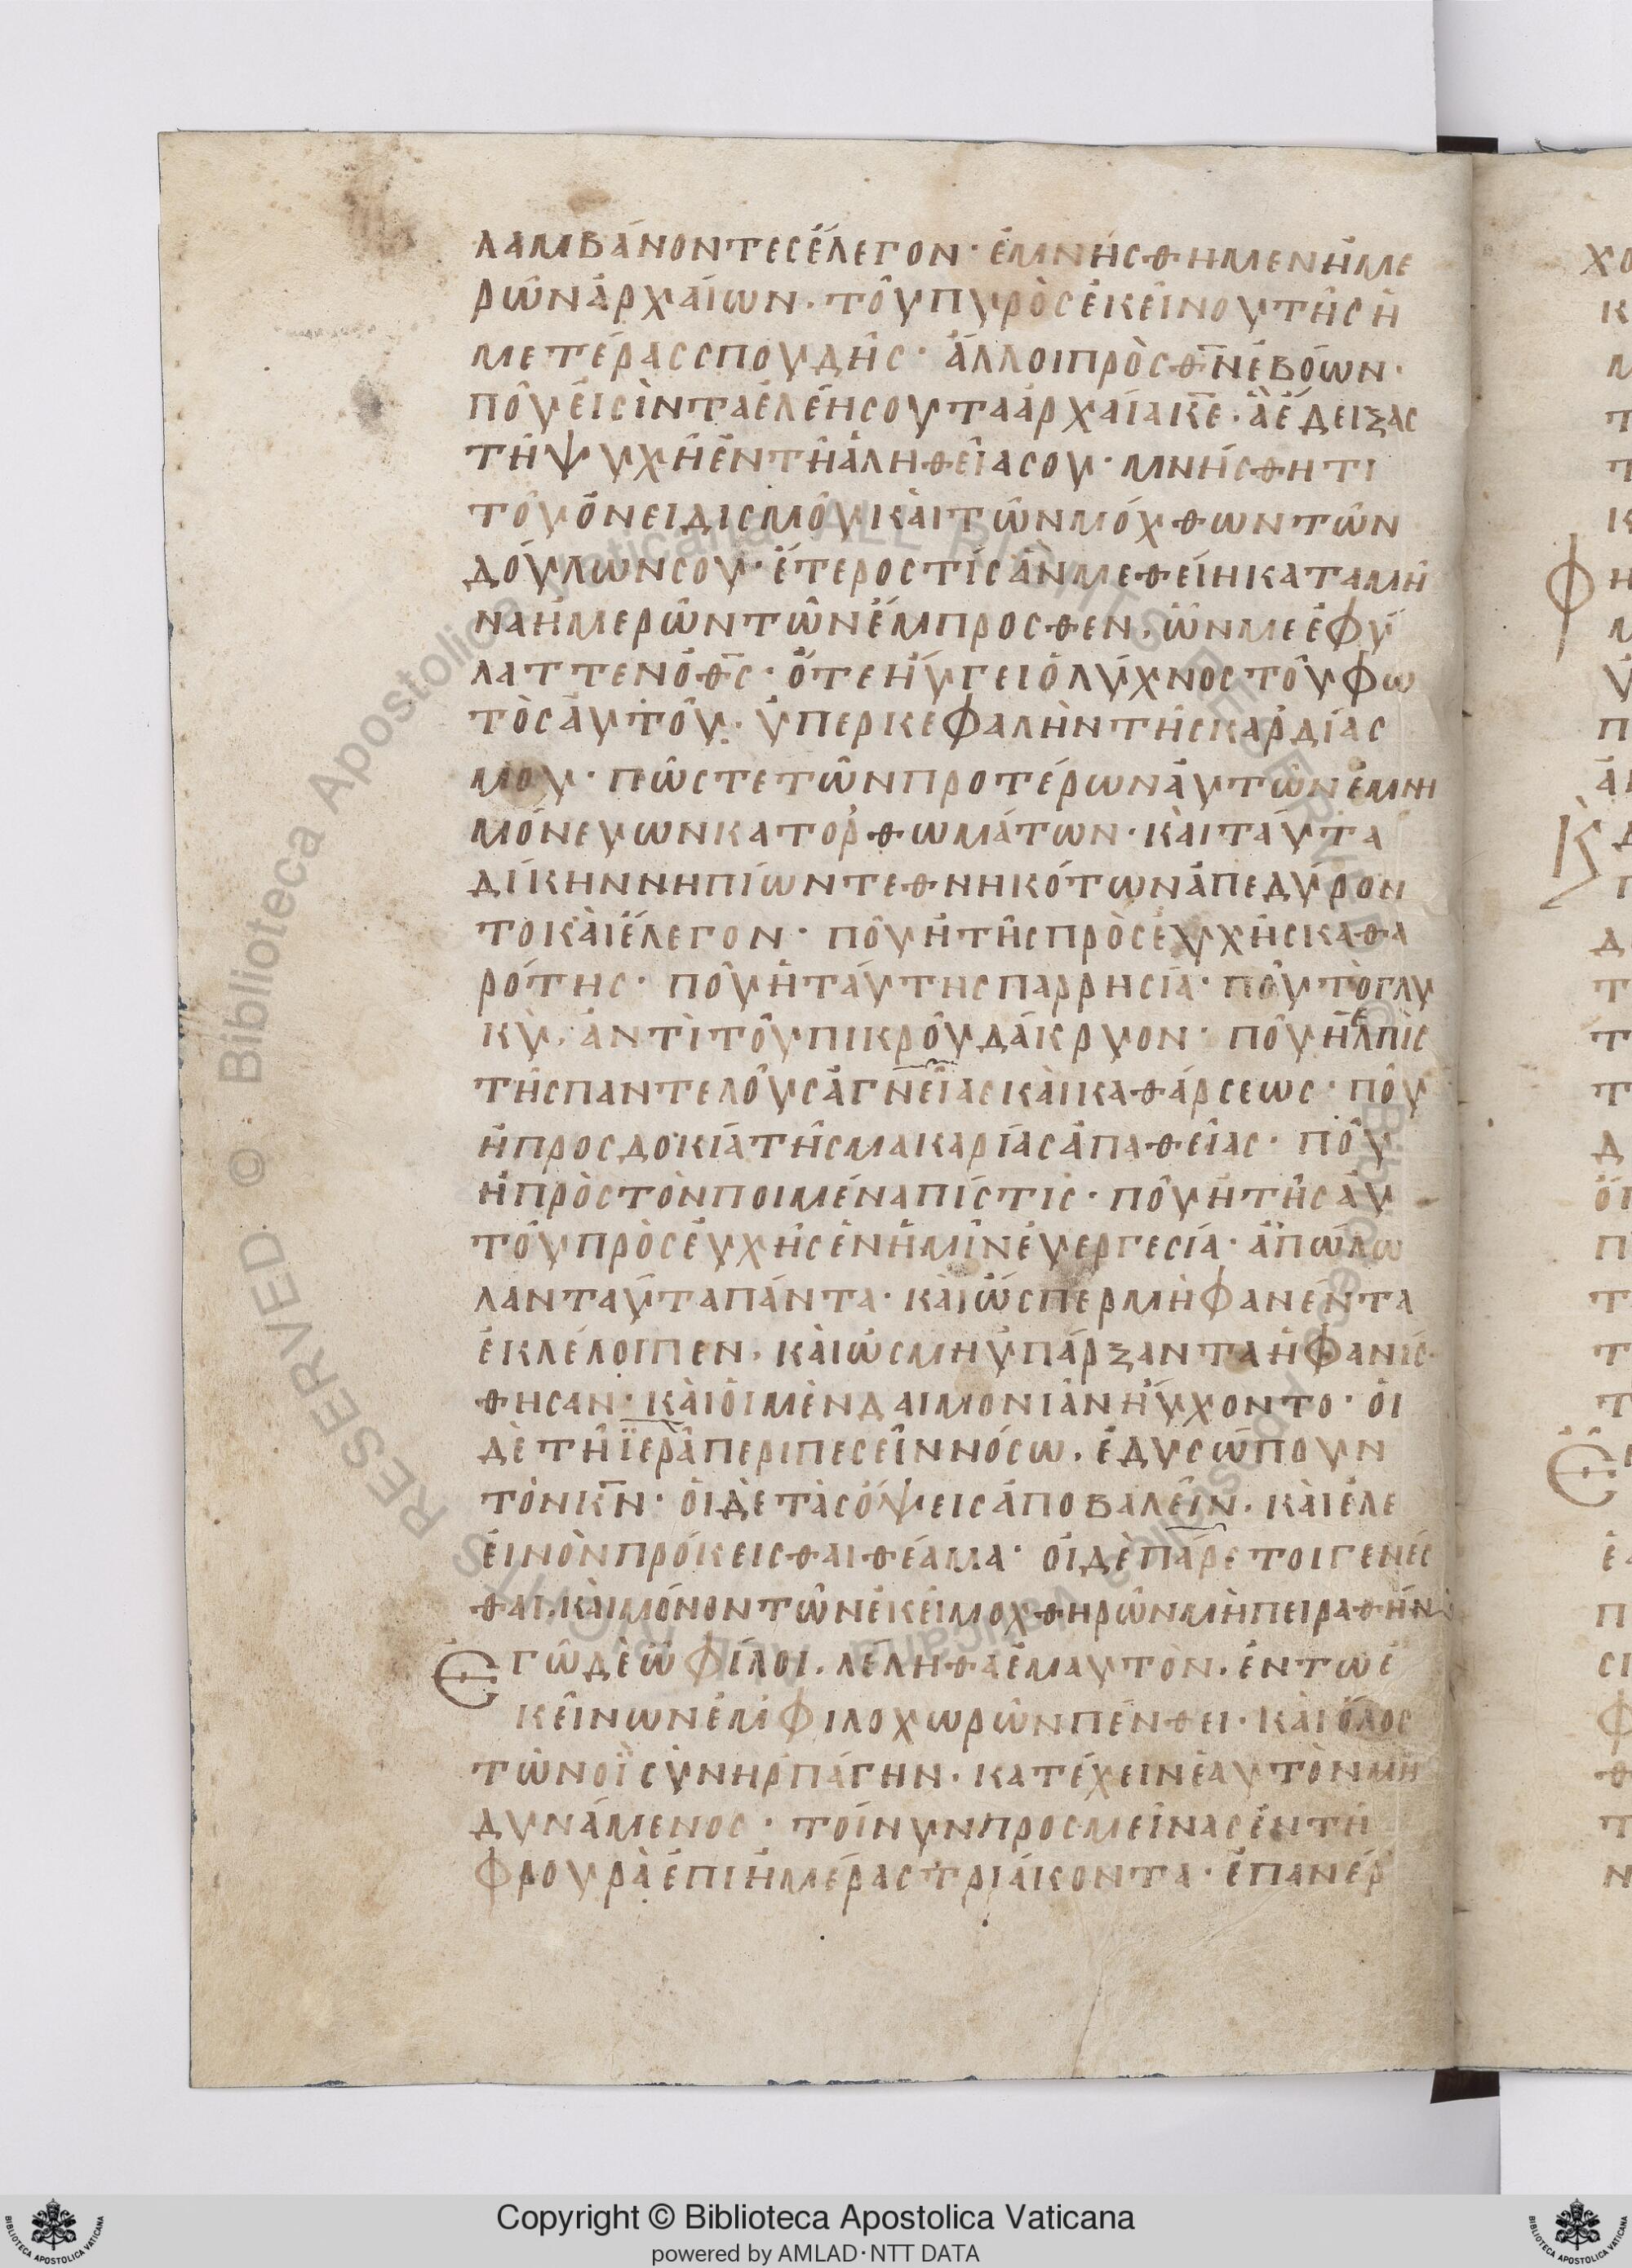 λαμβάνοντες ἔλεγον· ἐμνήσθημεν ἡμε
ρῶν ἀρχαίων. τοῦ πυρὸς ἐκείνου τῆς ἡ
μετέρας σπουδῆς· ἄλλοι πρὸς θ̅ν̅ ἐβόων·
ποῦ εἰσὶν τα ἐλέη σου τα ἀρχαῖα κ̅ε̅· ἃ ἔδειξας
τῆ ψυχῆ ἐν τῆ ἀληθεία σου· μνήσθητι
τοῦ ὀνειδισμοῦ καὶ τῶν μόχθων τῶν
δούλων σου· ἕτερος τίς ἂν με θείη κατα μῆ
να ἡμερῶν τῶν ἔμπροσθεν. ὧν με ἐφύ
λαττεν ὁ θ̅ς̅· ὅτε ηὔγει ὁ λύχνος τοῦ φω
τὸς αὐτοῦ. ὑπερ κεφαλὴν τῆς καρδίας
μου· πῶς τε τῶν προτέρων αὐτῶν ἐμνη
μόνευων κατορθωμάτων· καὶ ταύτα
δίκην νηπίων τεθνηκότων ἀπεδύρον
το καὶ ἔλεγον· ποῦ ἡ τῆς πρὸσευχῆς καθα
ρότης· ποῦ ἡ ταύτης παρρησία· ποῦ τὸ γλυ
κὺ. ἀντὶ τοῦ πικροῦ δάκρυον· ποῦ ἡ ἐλπὶς
τῆς παντελοῦς ἁγνείας καὶ καθάρσεως· ποῦ
ἡ προσδοκία τῆς μακαρίας ἀπαθείας· ποῦ
ἡ πρὸς τὸν ποιμένα πίστις· ποῦ ἡ τῆς αὐ
τοῦ πρὸσευχῆς ἐν ἡμῖν εὐεργεσία· ἀπώλω
λαν ταύτα πάντα· καὶ ὥσπερ μὴ φανέντα
ἐκλέλοιπεν. καὶ ὡς μη ὑπάρξαντα ἠφανίσ
θησαν· καὶ οἱ μὲν δαιμονιᾶν ηὔχοντο· οἱ
δὲ τῆ ϊερᾶ περιπεσεῖν νόσω. ἐδυσώπουν
τὸν κ̅ν̅· οἱ δε τὰς ὄψεις ἀποβαλεῖν. καὶ ἐλε
εινὸν πρόκεισθαι θέαμα· οἱ δὲ πάρετοι γενές
θαι. καὶ μόνον τῶν ἐκεῖ μοχθηρῶν μὴ πειραθῆναι
Ἐγὼ δὲ ὦ φίλοι. λέληθα ἐμαυτὸν. ἐν τω ἐ
κείνων ἐμφιλοχωρῶν πένθει· καὶ ὅλος
τῶ νοῒ συνηρπάγην. κατέχειν ἑαυτὸν μὴ
δυνάμενος· τοίνυν προσμείνας ἐν τῆ
φρουρὰ ἐπὶ ἡμέρας τριάκοντα· ἐπανέρ
Copyright © Biblioteca Apostolica Vaticana
powered by AMLAD·NTT DATA